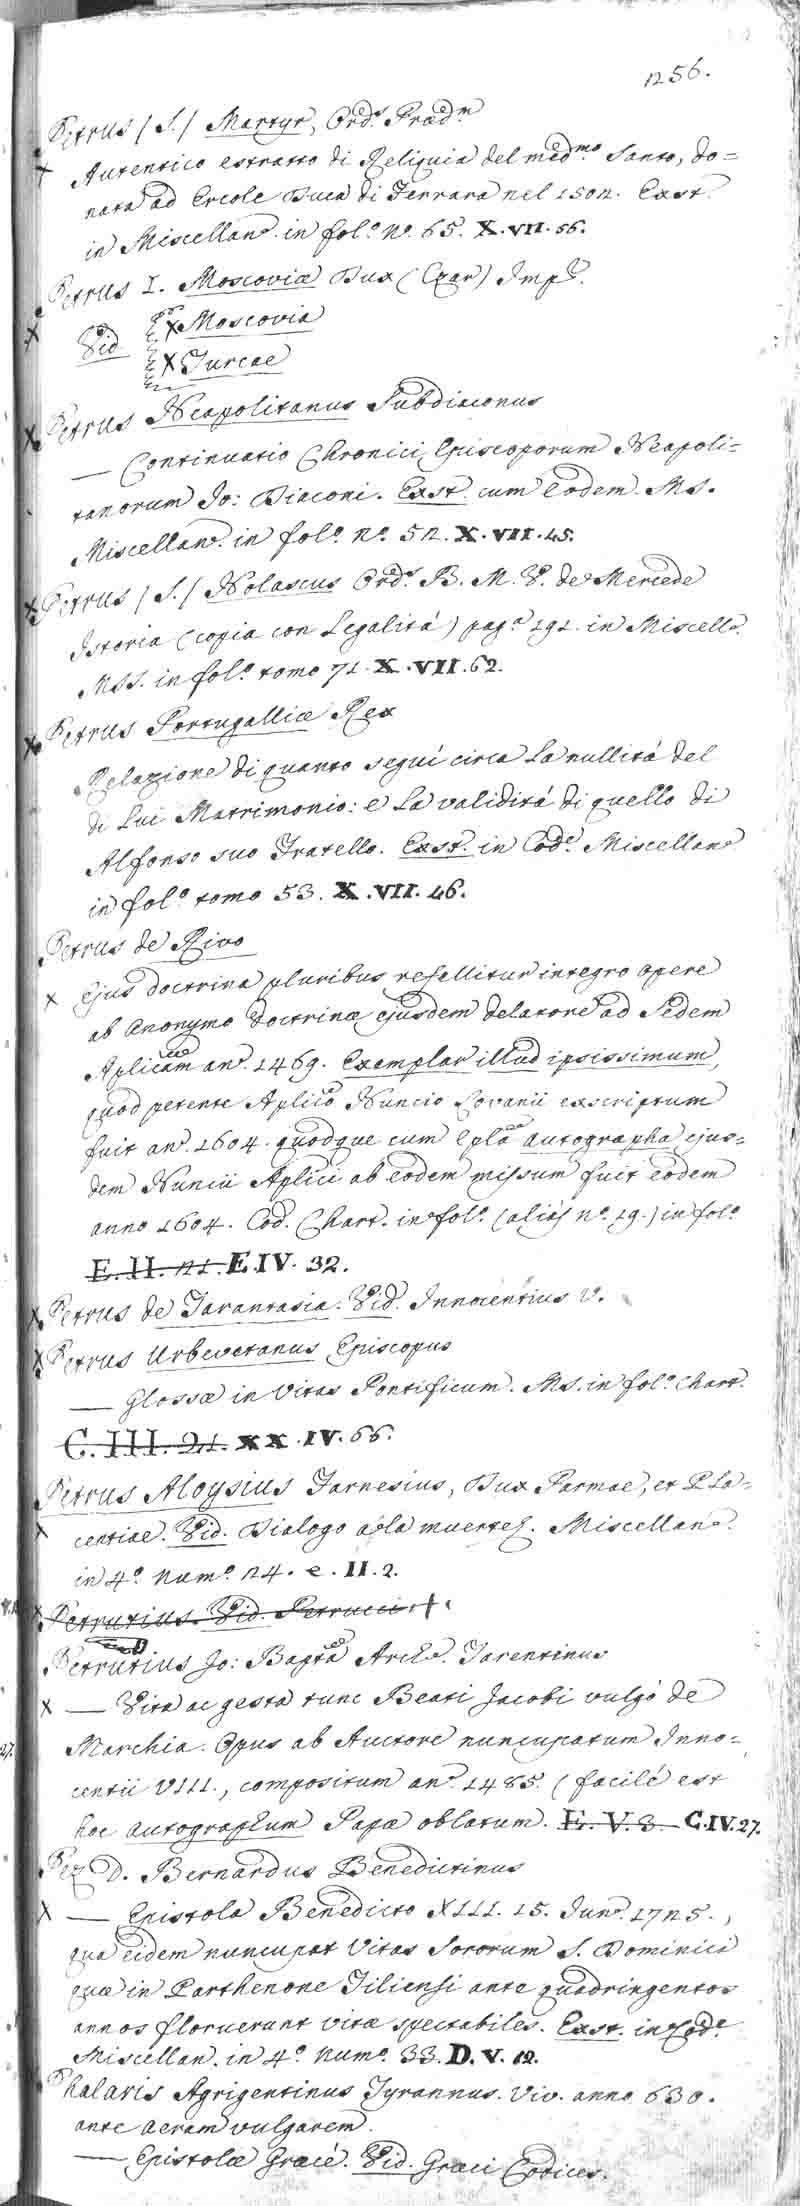 1256.
Petrus (S.) Martyr, Ord.s Præd.m
Autentico estratto di Reliquia del med.mo Santo, do=
nata ad Ercole Duca di Ferrara nel 1502. Exst.
in Miscellan. in fol.o n.o 65. X.VII.56.
Petrus I. Moscoviæ Dux (Czar) Imp.r
Vid. x Moscovia
x Turcae
Petrus Neapolitanus Subdiaconus
— Continuatio Chronici Episcoporum Neapoli=
tanorum Jo: Diaconi. Exst. cum eodem. Ms.
Miscellan. in fol.o n.o 52. X.VII.45.
Petrus (S.) Nolascus Ord.s B. M. V. de Mercede
Istoria (copia con Legalitá) pag.a 191. in Miscell.
MSS. in fol.o tomo 71. X.VII.62.
Petrus Portugalliæ Rex
Relazione di quanto seguí circa la nullitá del
di Lui Matrimonio: e la validitá di quello di
Alfonso suo Fratello. Exst. in Cod.e Miscellan.
in fol.o tomo 53. X.VII.46.
Petrus de Rivo
x Ejus doctrina pluribus refellitur integro opere
ab Anonymo doctrinæ ejusdem delatore ad Sedem
Aplicam an.o 1469. Exemplar illud ipsissimum,
quod petente Aplico Nuncio Lovanii exscriptum
fuit an.o 1604. quodque cum Epla autographa ejus=
dem Nuncii Aplici ab eodem missum fuit eodem
anno 1604. Cod. Chart. in fol.o (aliàs n.o 19.) in fol.o
E. II. 21. E.IV. 32.
Petrus de Tarantasia. Vid. Innocentius V.
Petrus Urbevetanus Episcopus
— Glossæ in Vitas Pontificum. Ms. in fol.o Chart.
C. III. 21. XX.IV.66.
Petrus Aloysius Farnesius, Dux Parmae, et Pla=
centiae. Vid. Dialogo a la muerte &. Miscellan.
in 4.o num.o 24. e. II. 2.
Petrutius. Vid. Petrucci
Petrutius Jo: Bapta Arch. Tarentinus
x — Vita ac gesta tunc Beati Jacobi vulgò de
Marchia. Opus ab Auctore nuncupatum Inno=
centii VIII., compositum an.o 1485. (facilè est
hoc autographum Papæ oblatum. E. V. 3. C.IV.27.
Pez D. Bernardus Benedictinus
x — Epistola Benedicto XIII. 15. Jun. 1725.,
qua eidem nuncupat Vitas Sororum S. Dominici
quæ in Parthenone Tiliensi ante quadringentos
annos floruerunt vitæ spectabiles. Exst. in Cod.e
Miscellan. in 4.o num.o 33. D. V. 12.
Phalaris Agrigentinus Tyrannus. Viv. anno 630.
ante aeram vulgarem.
— Epistolæ Græcè. Vid. Græci Codices.